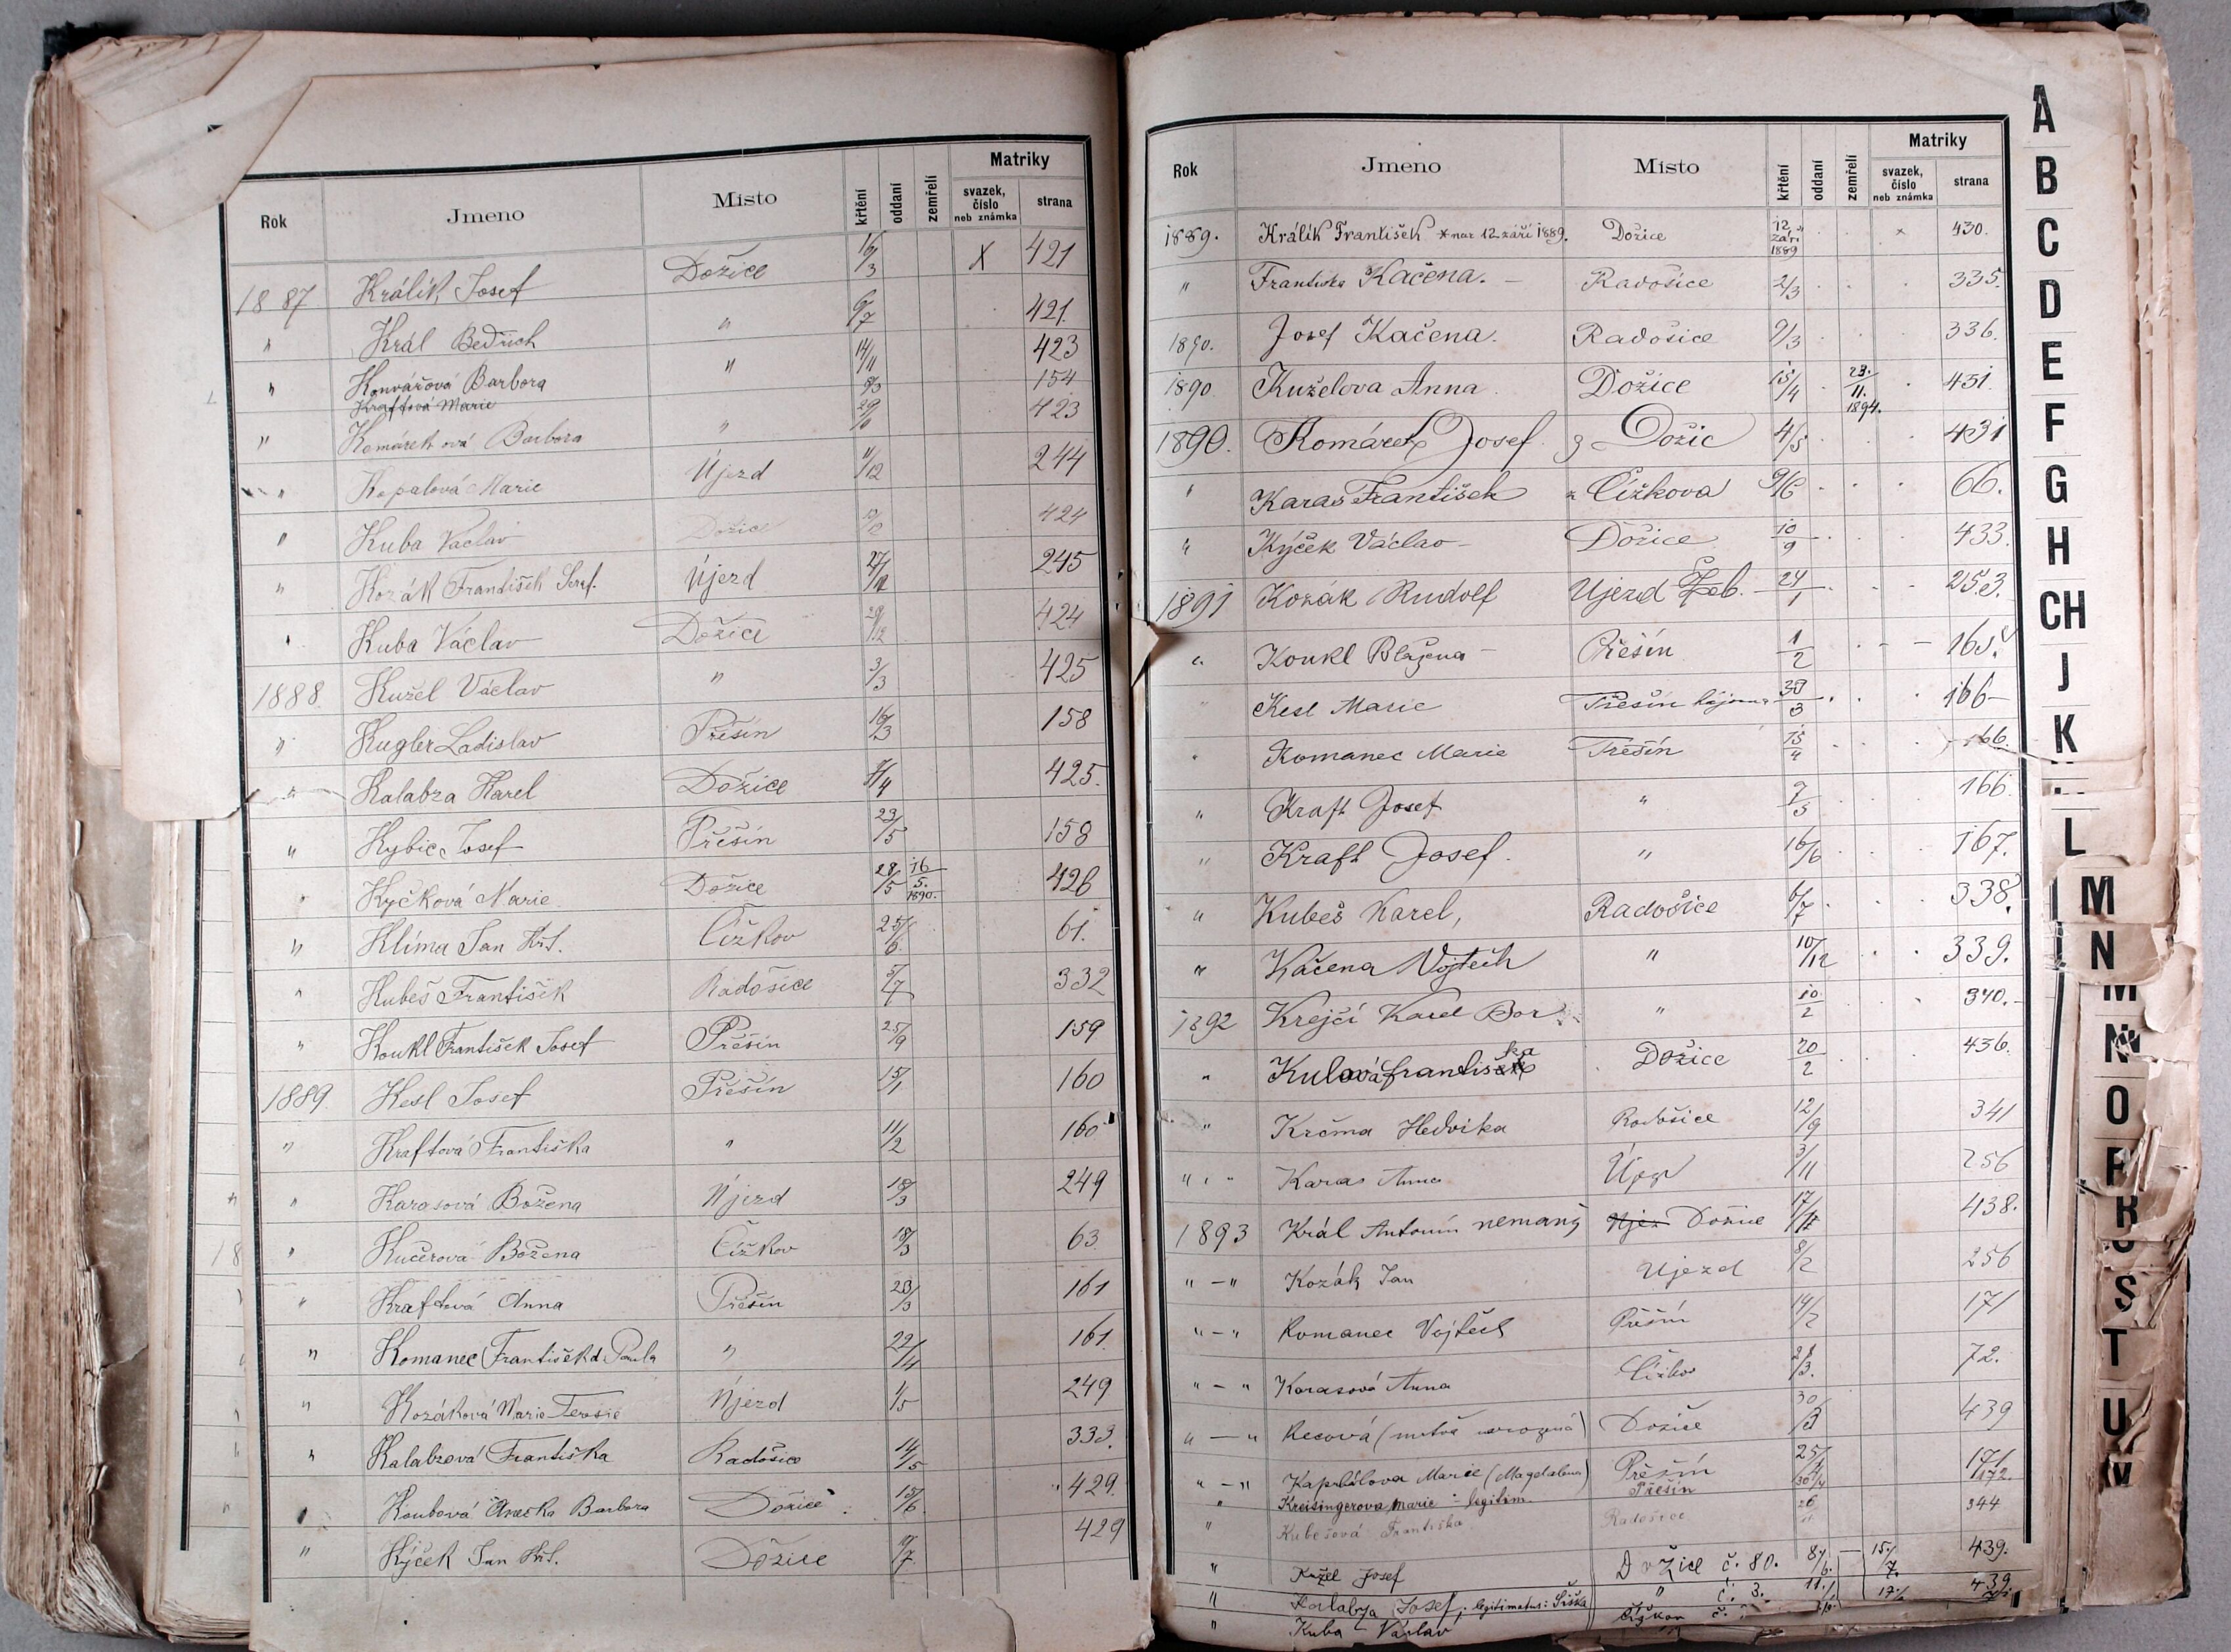 Rok Jmeno Místo křtění oddaní zemřelí Matriky svazek, číslo neb známka strana
1887 Králík Josef Dožice 16/3 X 421
" Král Bedřich " 6/7 421.
" Konvářová Barbora " 14/11 423
Kraftová Marie 154
" Komárek ová Barbora " 423
" Kopalová Marie Újezd 11/12 244
" Kuba Václav Dožice 424
" Kozák František Seraf. Újezd 27/12 245
" Kuba Václav Dožice 29/12 424
1888. Kužel Václav " 3/3 425
" Kugler Ladislav Přešín 16/3 158
" Kalabza Karel Dožice 7/4 425.
" Kybic Josef Přešín 23/5 158
" Kyčková Marie Dožice 28/5 16/5. 1890. 426
" Klíma Jan Křt. Čížkov 25/6 61.
" Kubeš František Radošice 5/7 332
" Koukl František Josef Přešín 25/9 159
1889. Kesl Josef Přešín 15/1 160
" Kraftová Františka " 11/2 160
" Karasová Božena Újezd 18/3 249
" Kučerová Božena Čížkov 18/3 63
" Kraftová Anna Přešín 23/3 161
" Komanec František d. Paula " 22/4 161.
" Kozáková Marie Terezie Újezd 1/5 249
" Kalabzová Františka Radošice 14/5 333.
" Koubová Anežka Barbora Dožice 15/6 429.
" Kýček Jan Křt. Dožice 9/7 429
Rok Jmeno Místo křtění oddaní zemřelí Matriky svazek, číslo neb známka strana
1889. Králík František *nar 12. září 1889. Dožice 12. září 1889 × 430.
" Františka Kačena. – Radošice 2/3 335.
1890. Josef Kačena. Radošice 9/3 336.
1890 Kuželova Anna Dožice 15/4 23. 11. 1894. 431.
1890. Komárek Josef z Dožic 4/5 431
" Karas František z Čížkova 9/6 66.
" Kýček Václav – Dožice 10/9 433.
1891 Kozák Rudolf Ujezd 24/1 253.
" Koukl Blažena – Přešín 1/2 165.
" Kesl Marie Přešín hájovna 30/3 166 –
" Komanec Marie Přešín 15/4 166.
" Kraft Josef " 9/5 166.
" Kraft Josef. " 16/6 167.
" Kubeš Karel, Radošice 6/7 338.
" Kačena Vojtěch " 10/12 339.
1892 Krejčí Karel Bor " 10/2 340.
" Kulová Františka Dožice 20/2 436.
" Krčma Hedvika Radošice 12/9 341
" " Karas Anna 3/11 256
1893 Král Antonín nemanž. Dožice 438.
" – " Kozák Jan Ujezd 8/2 256
" – " Komanec Vojtěch Přešín 14/2 171
" – " Karasová Anna Čížkov 72.
" – " Kecová (mrtvě narozená) Dožice 30/3 439
" – " Marie (Magdalena) Přešín 171
" Kreisingerova Marie – legitim. Přešín 30/4 172.
" Kubešová Františka Radošice 344
" Kužel Josef Dožice č. 80. 8/6. – 15./7. 439.
" Kalabza Josef, legitimatus: Šiška " č. 3. 439
" Kuba Václav Čížkov č.
A
B
C
D
E
F
G
H
CH
J
K
L
M
N
M
N
O
P
R
S
T
U